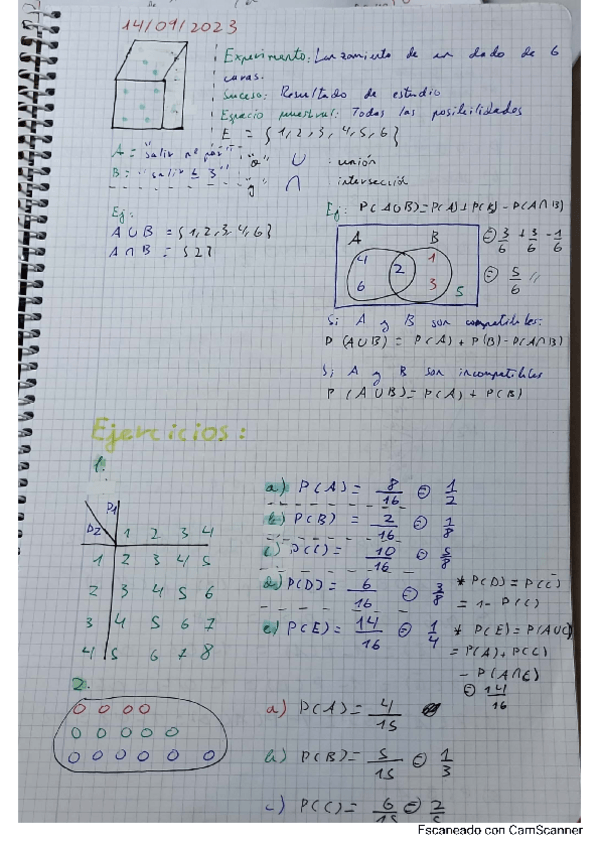 14/09/2023
Experimento: Lanzamiento de un dado de 6
caras.
Suceso: Resultado de estudio
Espacio muestral: Todas las posibilidades
E = {1,2,3,4,5,6}
A = "salir nº par" "o" ∪ unión
B: "salir ≤ 3" "y" ∩ intersección
Ej:
A∪B = {1,2,3,4,6}
A∩B = {2}
Ej: P(A∪B)=P(A)+P(B)-P(A∩B)
A B
4 2 1
6 3 5
= 3/6 + 3/6 - 1/6
= 5/6 //
Si A y B son compatibles:
P(A∪B) = P(A)+P(B)-P(A∩B)
Si A y B son incompatibles
P(A∪B)=P(A)+P(B)
Ejercicios:
1.
D1
D2 1 2 3 4
1 2 3 4 5
2 3 4 5 6
3 4 5 6 7
4 5 6 7 8
a) P(A)= 8/16 = 1/2
b) P(B)= 2/16 = 1/8
c) P(C)= 10/16 = 5/8
d) P(D)= 6/16 = 3/8 * P(D)=P(C̅)
= 1- P(C)
e) P(E)= 14/16 = 1/4 * P(E)=P(A∪C)
= P(A)+P(C)
- P(A∩C)
= 14/16
2.
a) P(A)= 4/15
b) P(B)= 5/15 = 1/3
c) P(C)= 6/15 = 2/5
Escaneado con CamScanner